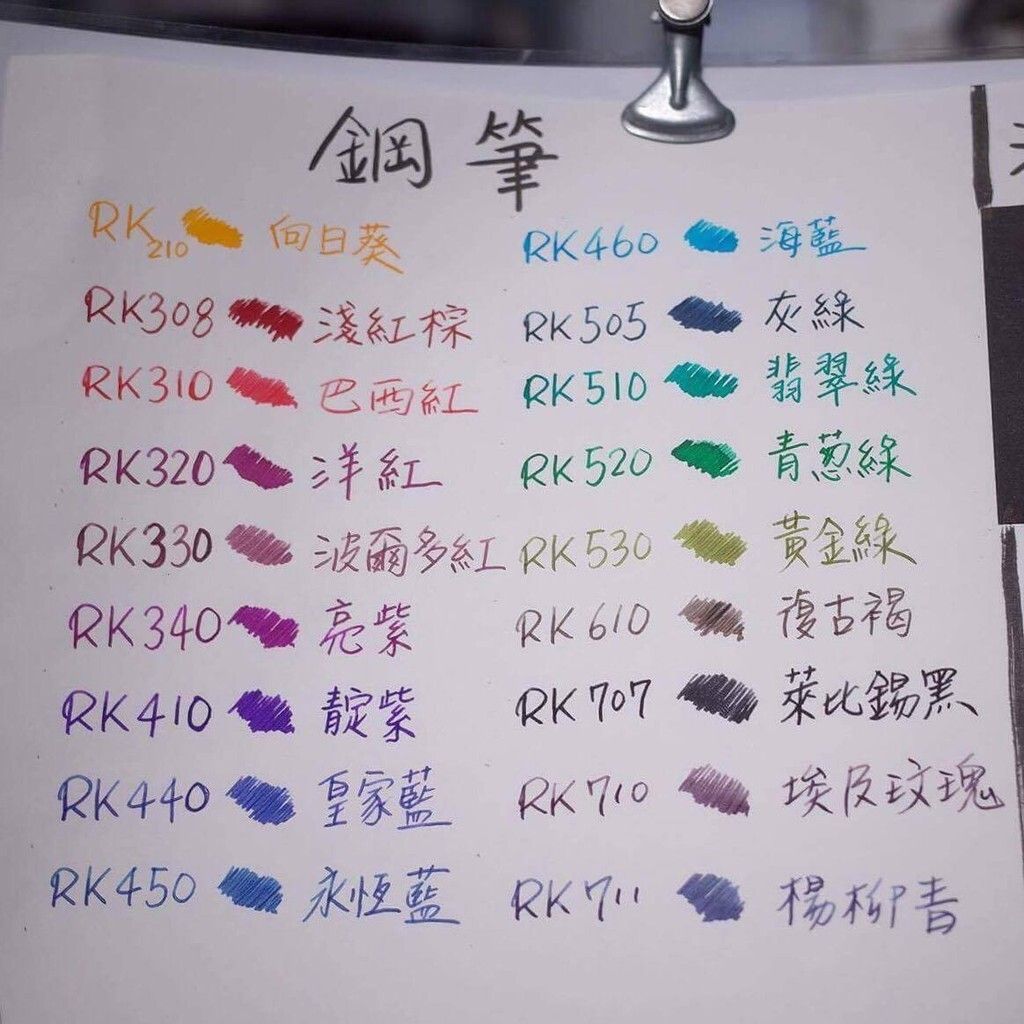 鋼筆
RK210 向日葵
RK308 淺紅棕
RK310 巴西紅
RK320 洋紅
RK330 波爾多紅
RK340 亮紫
RK410 靛紫
RK440 皇家藍
RK450 永恆藍
RK460 海藍
RK505 灰綠
RK510 翡翠綠
RK520 青蔥綠
RK530 黃金綠
RK610 復古褐
RK707 萊比錫黑
RK710 埃及玫瑰
RK711 楊柳青